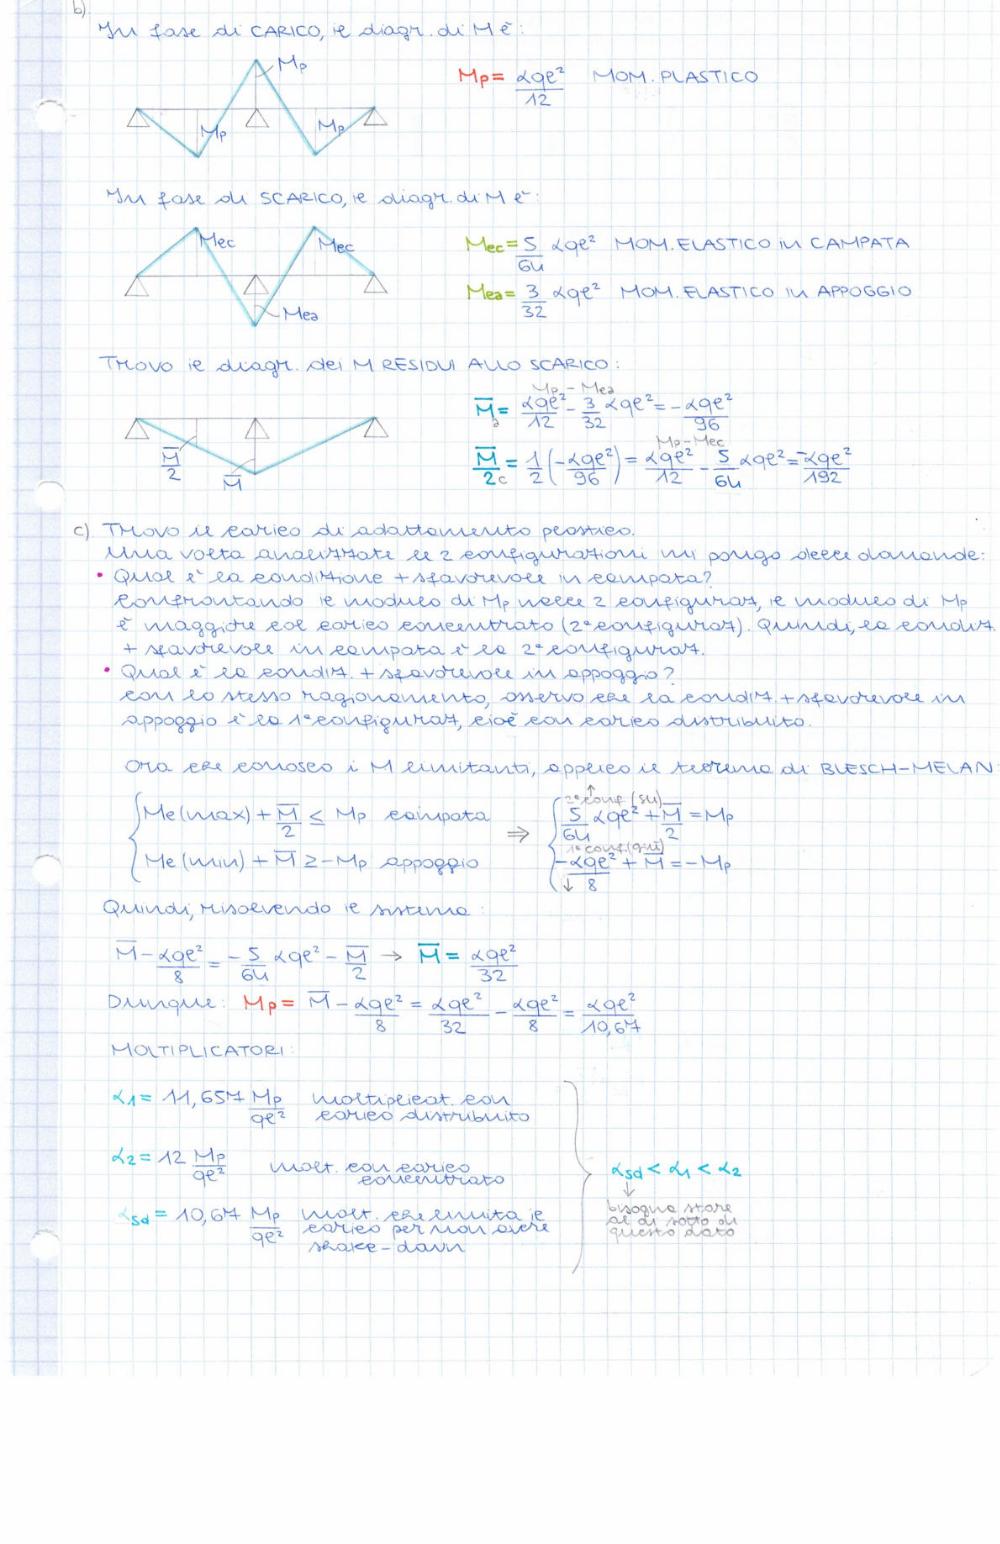 b)
In fase di CARICO, il diagr. di M è:
Mp
Mp
Mp
Mp = αqℓ²/12 MOM. PLASTICO
In fase di SCARICO, il diagr. di M è:
Mec
Mec
Mea
Mec = 5/64 αqℓ² MOM. ELASTICO in CAMPATA
Mea = 3/32 αqℓ² MOM. ELASTICO in APPOGGIO
Trovo il diagr. dei M RESIDUI ALLO SCARICO:
M̅/2
M̅
Mp - Mea
M̅a = αqℓ²/12 - 3/32 αqℓ² = -αqℓ²/96
Mp - Mec
M̅/2 c = 1/2 (-αqℓ²/96) = αqℓ²/12 - 5/64 αqℓ² = -αqℓ²/192
c) Trovo il carico di adattamento plastico.
Una volta analizzate le 2 configurazioni mi pongo delle domande:
• Qual è la condizione + sfavorevole in campata?
Confrontando il modulo di Mp nelle 2 configuraz, il modulo di Mp
è maggiore col carico concentrato (2ª configuraz). Quindi, la condiz
+ sfavorevole in campata è la 2ª configuraz.
• Qual è la condiz. + sfavorevole in appoggio?
Con lo stesso ragionamento, osservo che la condiz. + sfavorevole in
appoggio è la 1ª configuraz, cioè con carico distribuito.
Ora che conosco i M limitanti, applico il teorema di BLESCH-MELAN:
Me(max) + M̅/2 ≤ Mp campata
Me(min) + M̅ ≥ -Mp appoggio
⇒
2ª conf. (su) ↑
5/64 αqℓ² + M̅/2 = Mp
1ª conf. (giù)
↓ -αqℓ²/8 + M̅ = -Mp
Quindi, risolvendo il sistema:
M̅ - αqℓ²/8 = -5/64 αqℓ² - M̅/2 → M̅ = αqℓ²/32
Dunque: Mp = M̅ - αqℓ²/8 = αqℓ²/32 - αqℓ²/8 = αqℓ²/10,67
MOLTIPLICATORI:
α1 = 11,657 Mp/qℓ² moltiplicat. con
carico distribuito
α2 = 12 Mp/qℓ² molt. con carico
concentrato
αsd = 10,67 Mp/qℓ² molt. che limita il
carico per non avere
shake-down
αsd < α1 < α2
↓
bisogna stare
al di sotto di
questo dato